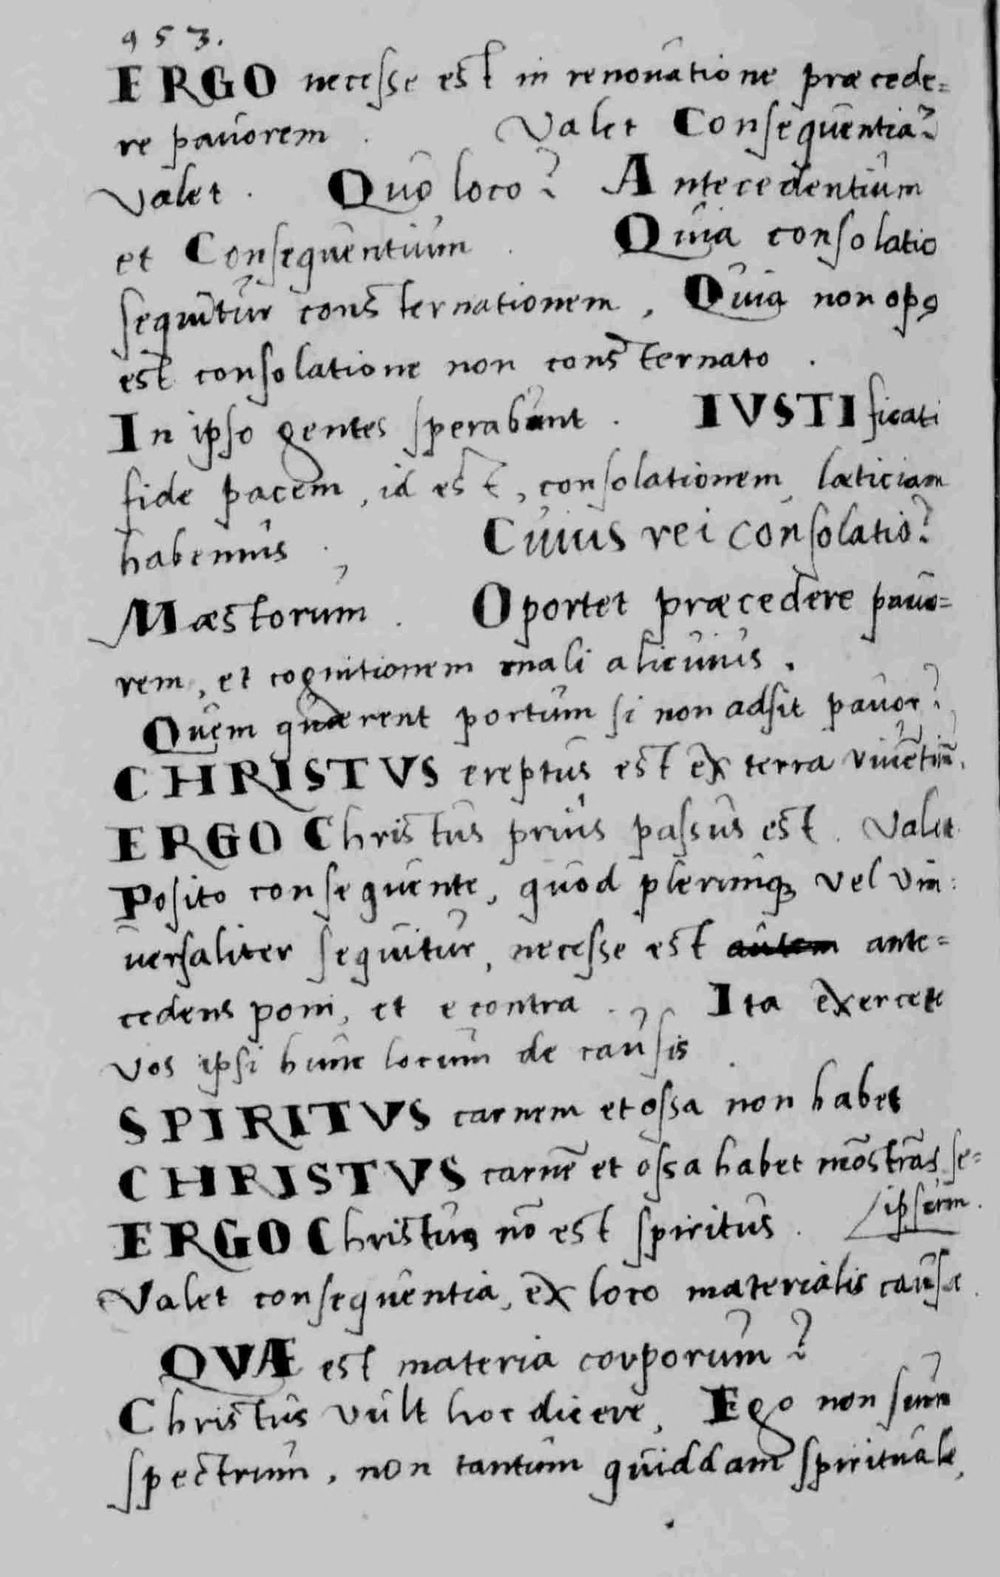 953.
ERGO necesse est in renovatione præcede=
re pavorem . Valet Consequentia?
Valet . Quo loco? Antecedentium
et Consequentium . Quia consolatio
sequitur consternationem , Quia non opꝰ
est consolatione non consternato .
In ipso gentes sperabunt . IVSTIficati
fide pacem , id est, consolationem, læticiam
habemus . Cuius rei consolatio?
Mæstorum . Oportet præcedere pavo=
rem, et cognitionem mali alicuius .
Quem quærent portum si non adsit pavor?
CHRISTVS ereptus est ex terra viventiū.
ERGO Christus prius passus est . Valet
Posito consequente, quod plerunqȝ vel vni:
versaliter sequitur, necesse est ante=
cedens poni, et e contra . Ita exercete
vos ipsi hunc locum de causis
SPIRITVS carnem et ossa non habet
CHRISTVS carnē et ossa habet mōstrās se=
ipsum .
ERGO Christus nō est spiritus .
Valet consequentia, ex loco materialis causæ .
QVÆ est materia corporum?
Christus vult hoc dicere, Ego non sum
spectrum, non tantum quiddam spirituale,